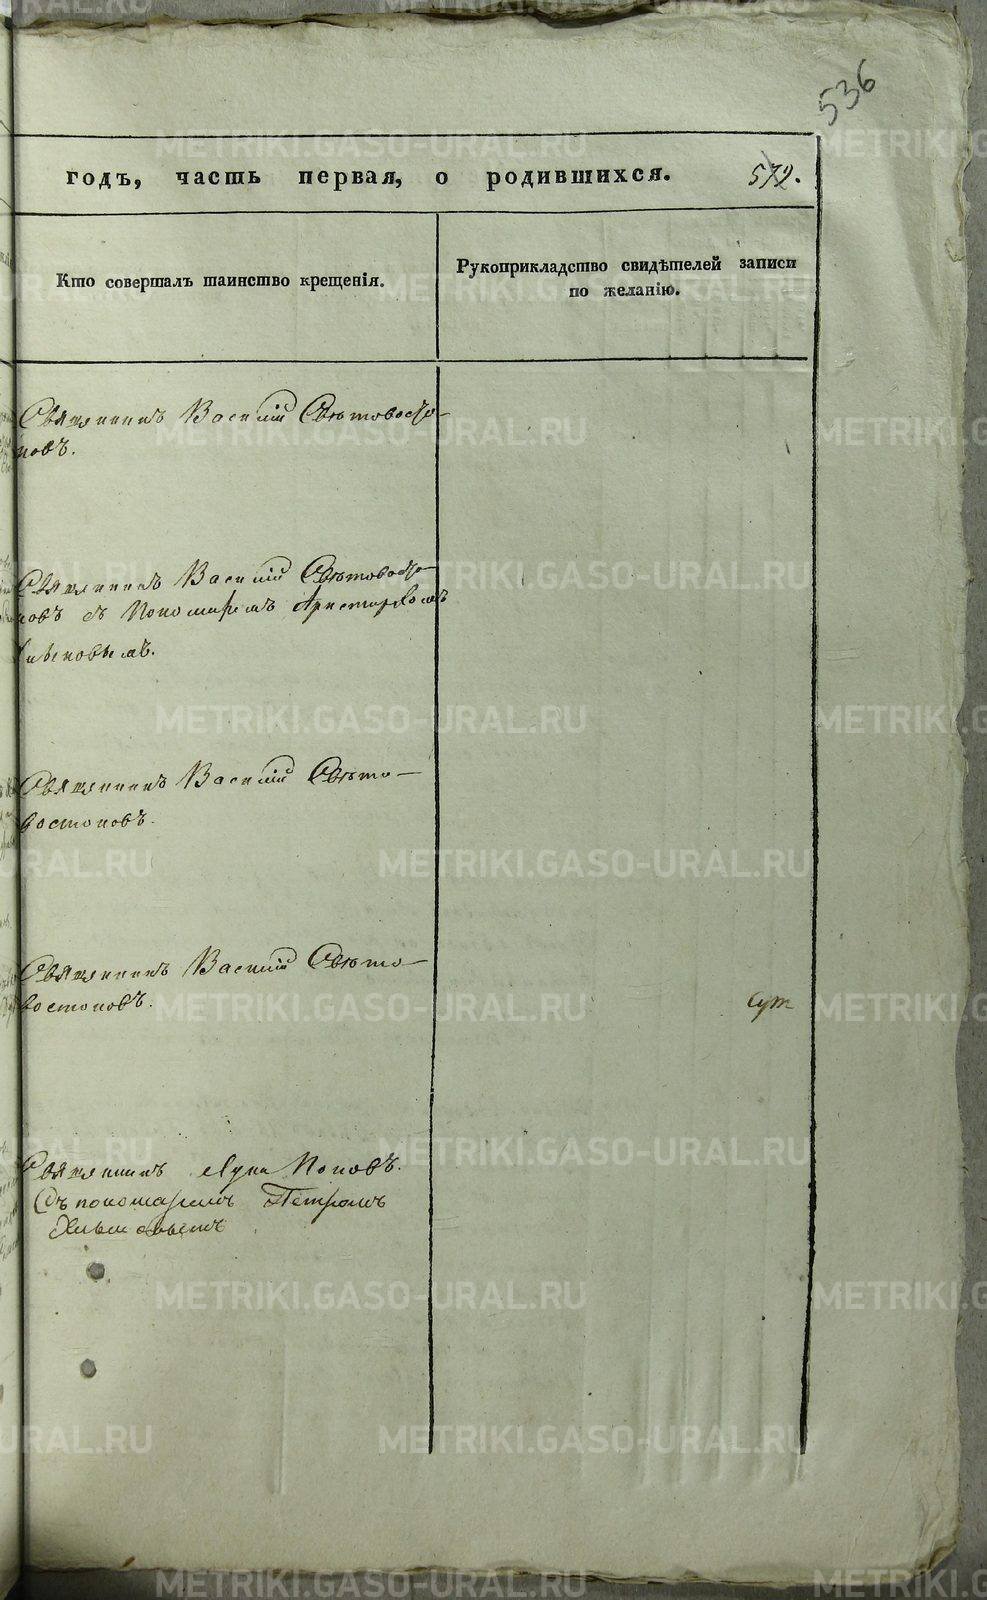 536
годъ, часть первая, о родившихся. 572.
Кто совершалъ таинство крещенія.
Рукоприкладство свидѣтелей записи
по желанію.
Священникъ Василій Свѣтовосто-
ковъ.
Священникъ Василій Свѣтовосто-
ковъ съ Пономаремъ Аристархомъ
Священникъ Василій Свѣто-
востоковъ.
Священникъ Василій Свѣто-
востоковъ.
Священникъ Лука Поповъ.
Съ пономаремъ Петромъ
METRIKI.GASO-URAL.RU